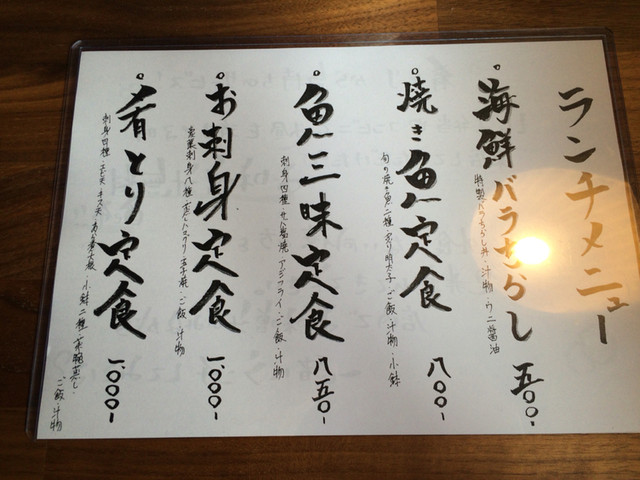 ランチメニュー
海鮮バラちらし 五〇〇-
特製バラちらし丼・汁物・ウニ醤油
焼き魚定食 八〇〇-
旬の焼き魚二種・炙り明太子・ご飯・汁物・小鉢
魚三昧定食 八五〇-
刺身四種・サバ塩焼・アジフライ・ご飯・汁物
お刺身定食 一、〇〇〇-
刺身八種・ご飯・汁物
肴とり定食 一、〇〇〇-
刺身四種・エビ天・キス天・小鉢二種・茶碗蒸し・
ご飯・汁物